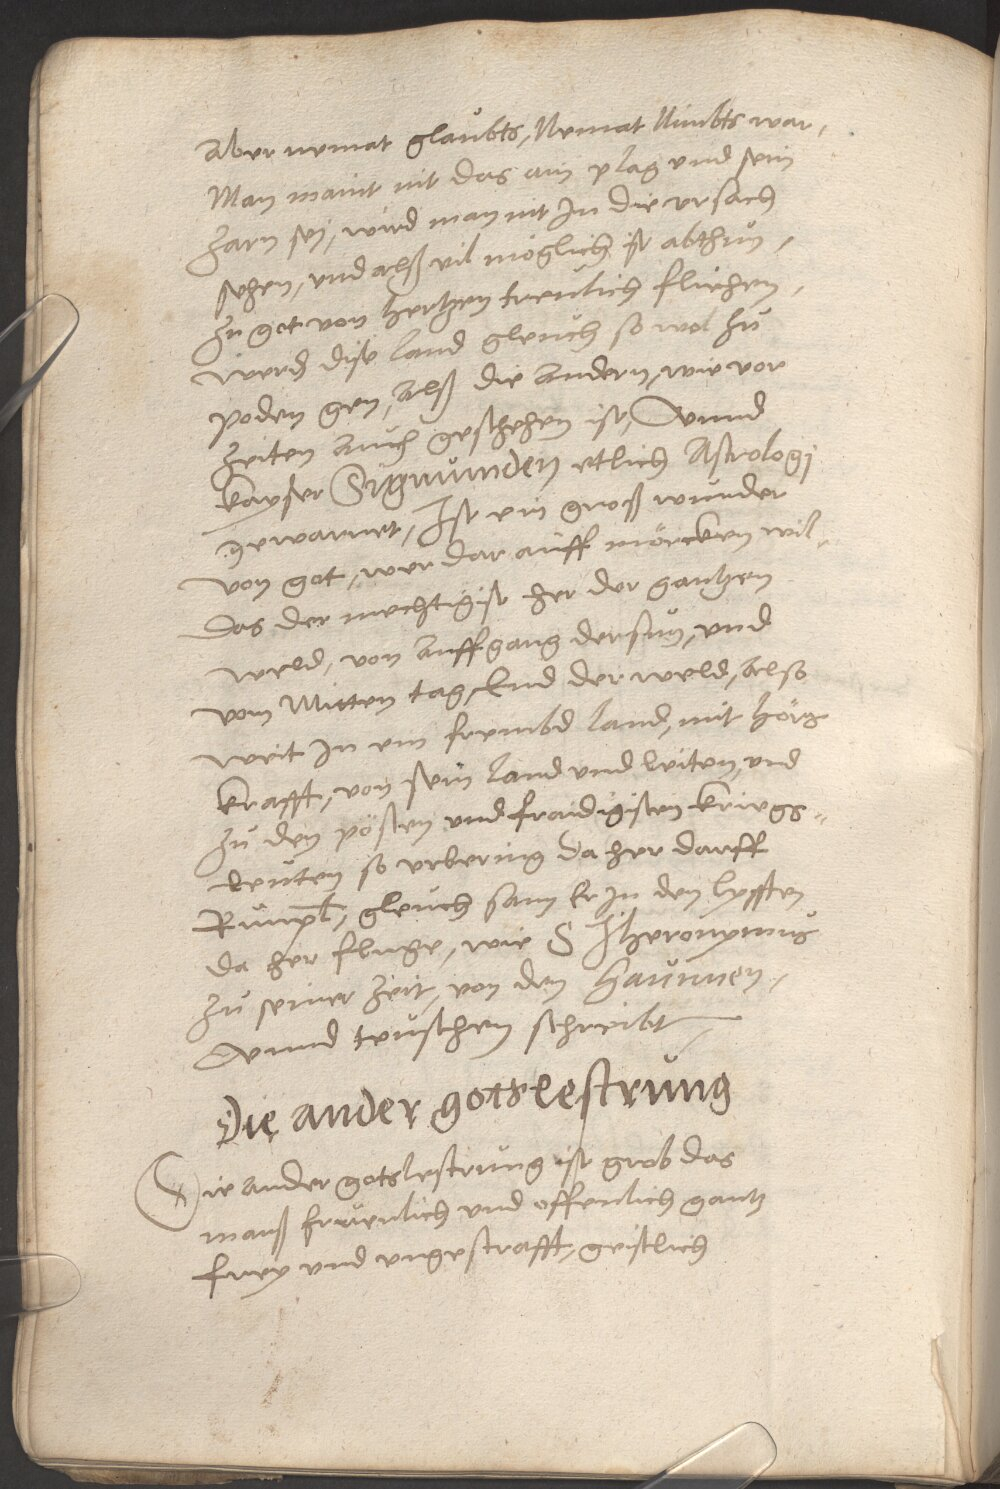 Aber nemat glaubts, Nemat Nimbts war,
Man maint nit das ain plag und sein
zarn sej, wird man nit In die ursach
sehen, und alß vil möglich ist abthun,
Zu got von hertzen treulich fliehen,
werd dise land gleuch so wol zu
poden gen, Alß die Andern, wie vor
zeiten Auch geschehen ist, Unnd
kayser Sigmunden etlich Astrologj
gewarnet, Ist ein groß wunder
von got, wer dar auff mörcken wil,
Das der mechtigist her der gantzen
weld, von Auffgang der sun, und
vom Mitten tag End der weld, also
weit In ein frembd land, mit hörs
krafft, von sein land und leiten, und
Zu den pösten und fraidigisten kriegs-
leuten so urbering da her darff
Rumpl, gleuch sam Er In den lyfften
da her fluge, wie S Iheronymus
Zu seiner Zeit, von den Haunnen,
Unnd teuschen schreibt
Die ander gotslestrung
Die ander gotslestrung ist grob das
manß freuenlich und offenlich gantz
frey und ungestrafft, geistlich